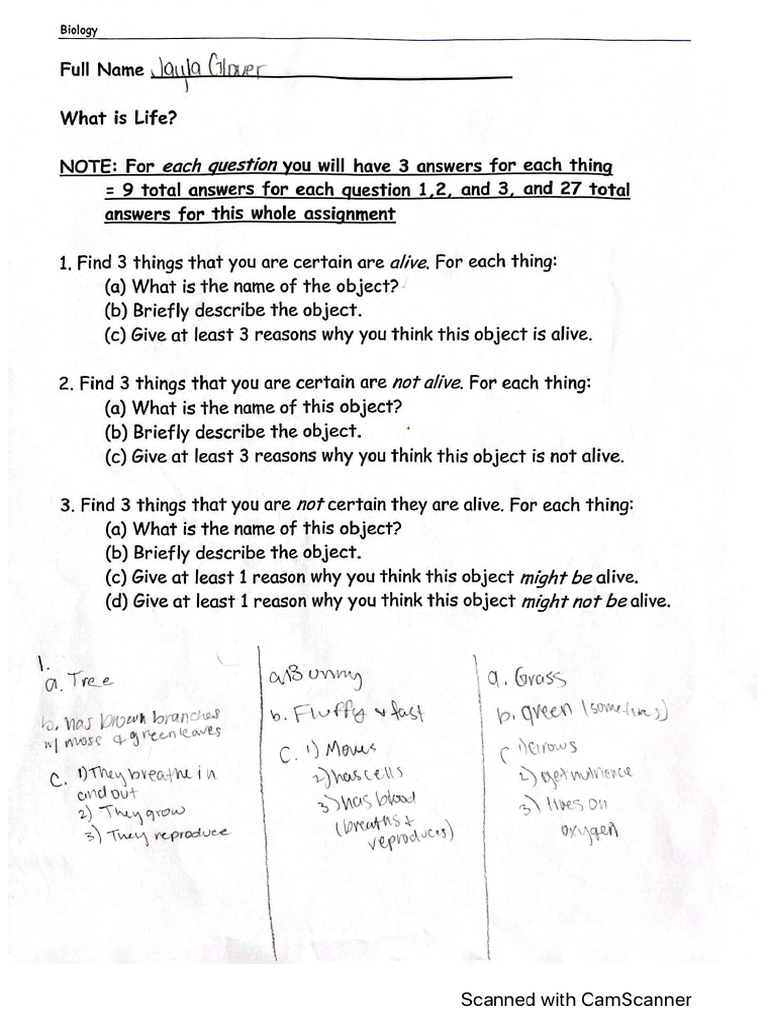 Biology
Full Name Jayla Glover
What is Life?
NOTE: For each question you will have 3 answers for each thing
= 9 total answers for each question 1,2, and 3, and 27 total
answers for this whole assignment
1. Find 3 things that you are certain are alive. For each thing:
(a) What is the name of the object?
(b) Briefly describe the object.
(c) Give at least 3 reasons why you think this object is alive.
2. Find 3 things that you are certain are not alive. For each thing:
(a) What is the name of this object?
(b) Briefly describe the object.
(c) Give at least 3 reasons why you think this object is not alive.
3. Find 3 things that you are not certain they are alive. For each thing:
(a) What is the name of this object?
(b) Briefly describe the object.
(c) Give at least 1 reason why you think this object might be alive.
(d) Give at least 1 reason why you think this object might not be alive.
1.
a. Tree
b. has brown branches
w/ mose & green leaves
C. 1) They breathe in
and out
2) They grow
3) They reproduce
a. Bunny
b. Fluffy & fast
C. 1) Moves
2) has cells
3) has blood
(breaths +
reproduces)
a. Grass
b. green (sometimes)
C 1) Grows
2) get nutrience
3) lives on
oxygen
Scanned with CamScanner